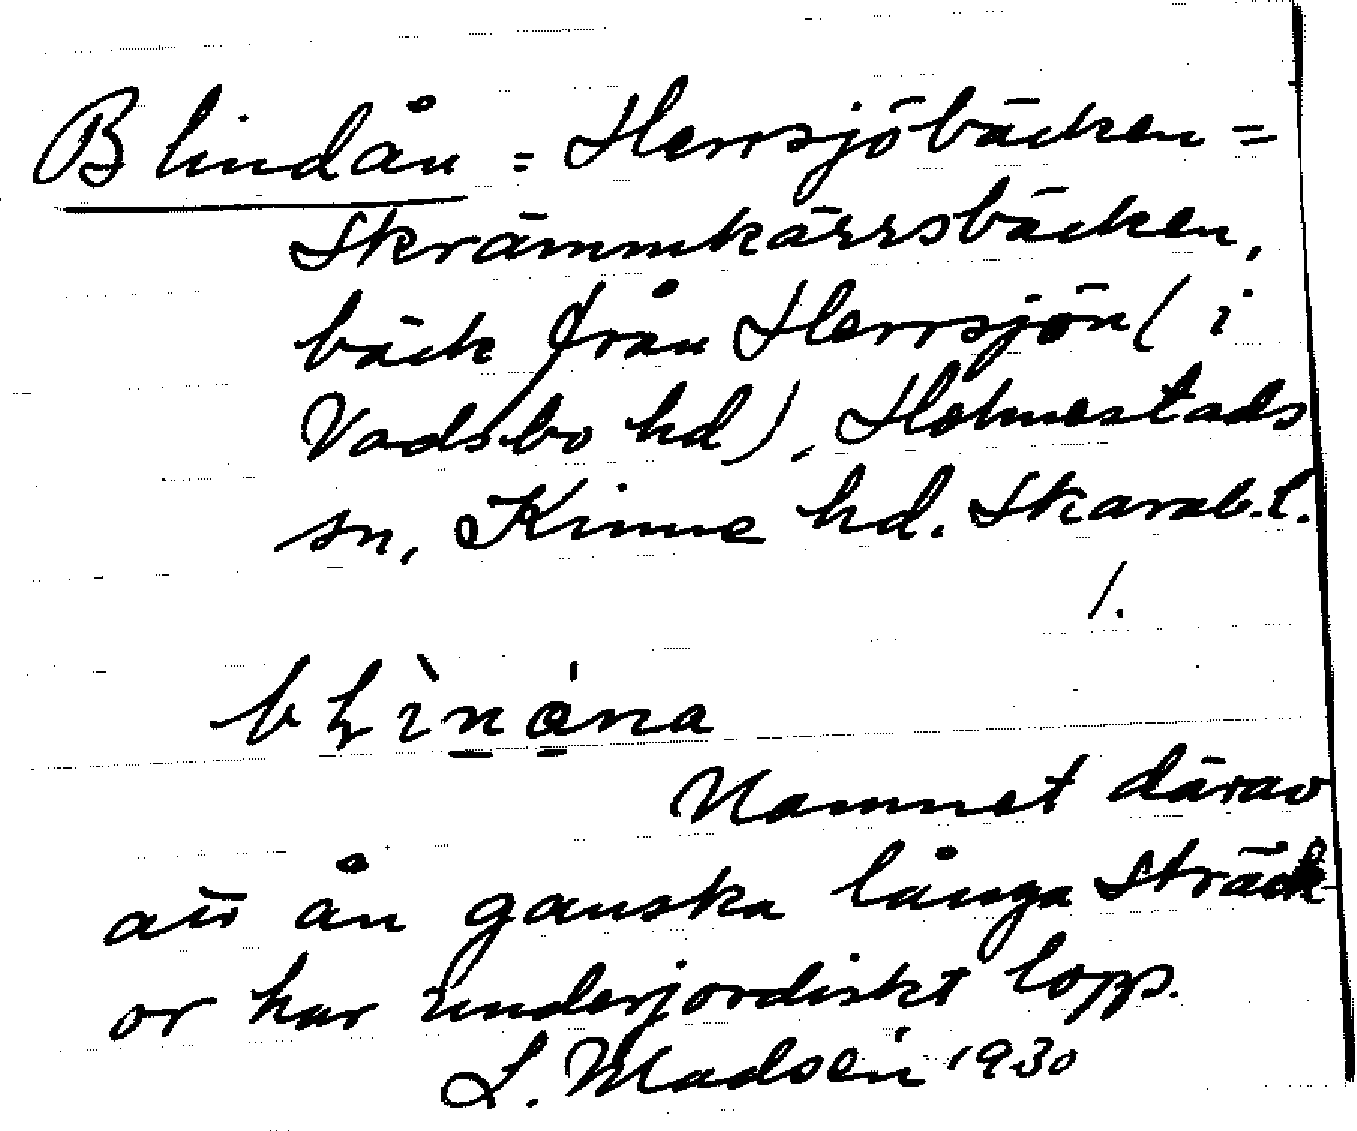 Blindån = Herrsjöbäcken =
Skrämmkärrsbäcken,
bäck från Herrsjön (i
Vadsbo hd), Holmestads
sn, Kinne hd. Skarab. l.
/.
Namnet därav
att ån ganska långa sträck
or har underjordiskt lopp.
L. Madsén 1930